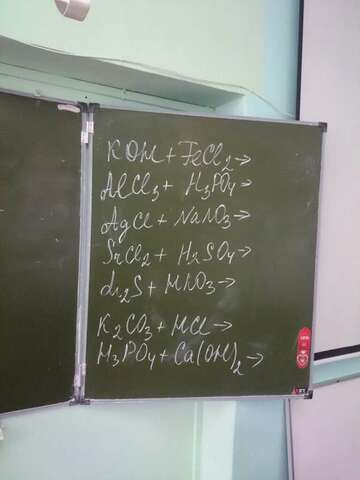 KOH + FeCl₂ →
AlCl₃ + H₃PO₄ →
AgCl + NaNO₃ →
SrCl₂ + H₂SO₄ →
Li₂S + HNO₃ →
K₂CO₃ + HCl →
H₃PO₄ + Ca(OH)₂ →